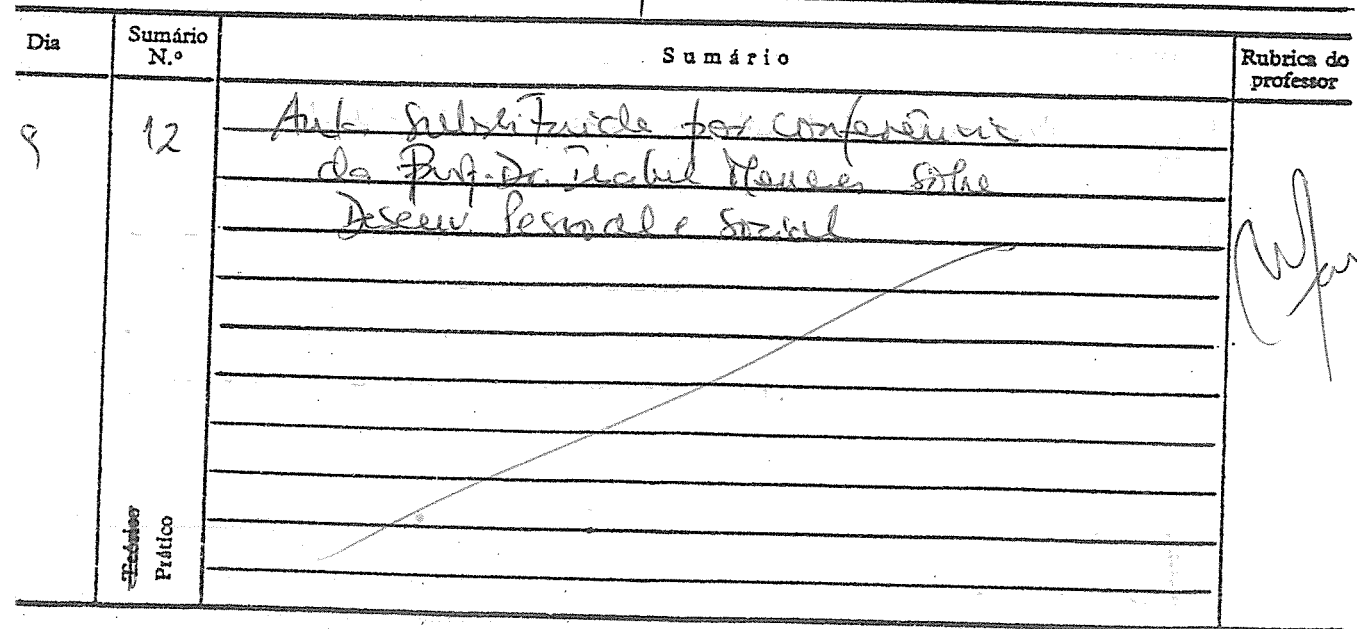 Dia
Sumário N.º
Sumário
Rubrica do professor
9
12
Aula substituída por conferência
da Prof. Dr. Isabel Menezes sobre
Desenv Pessoal e Social
Teórico
Prático